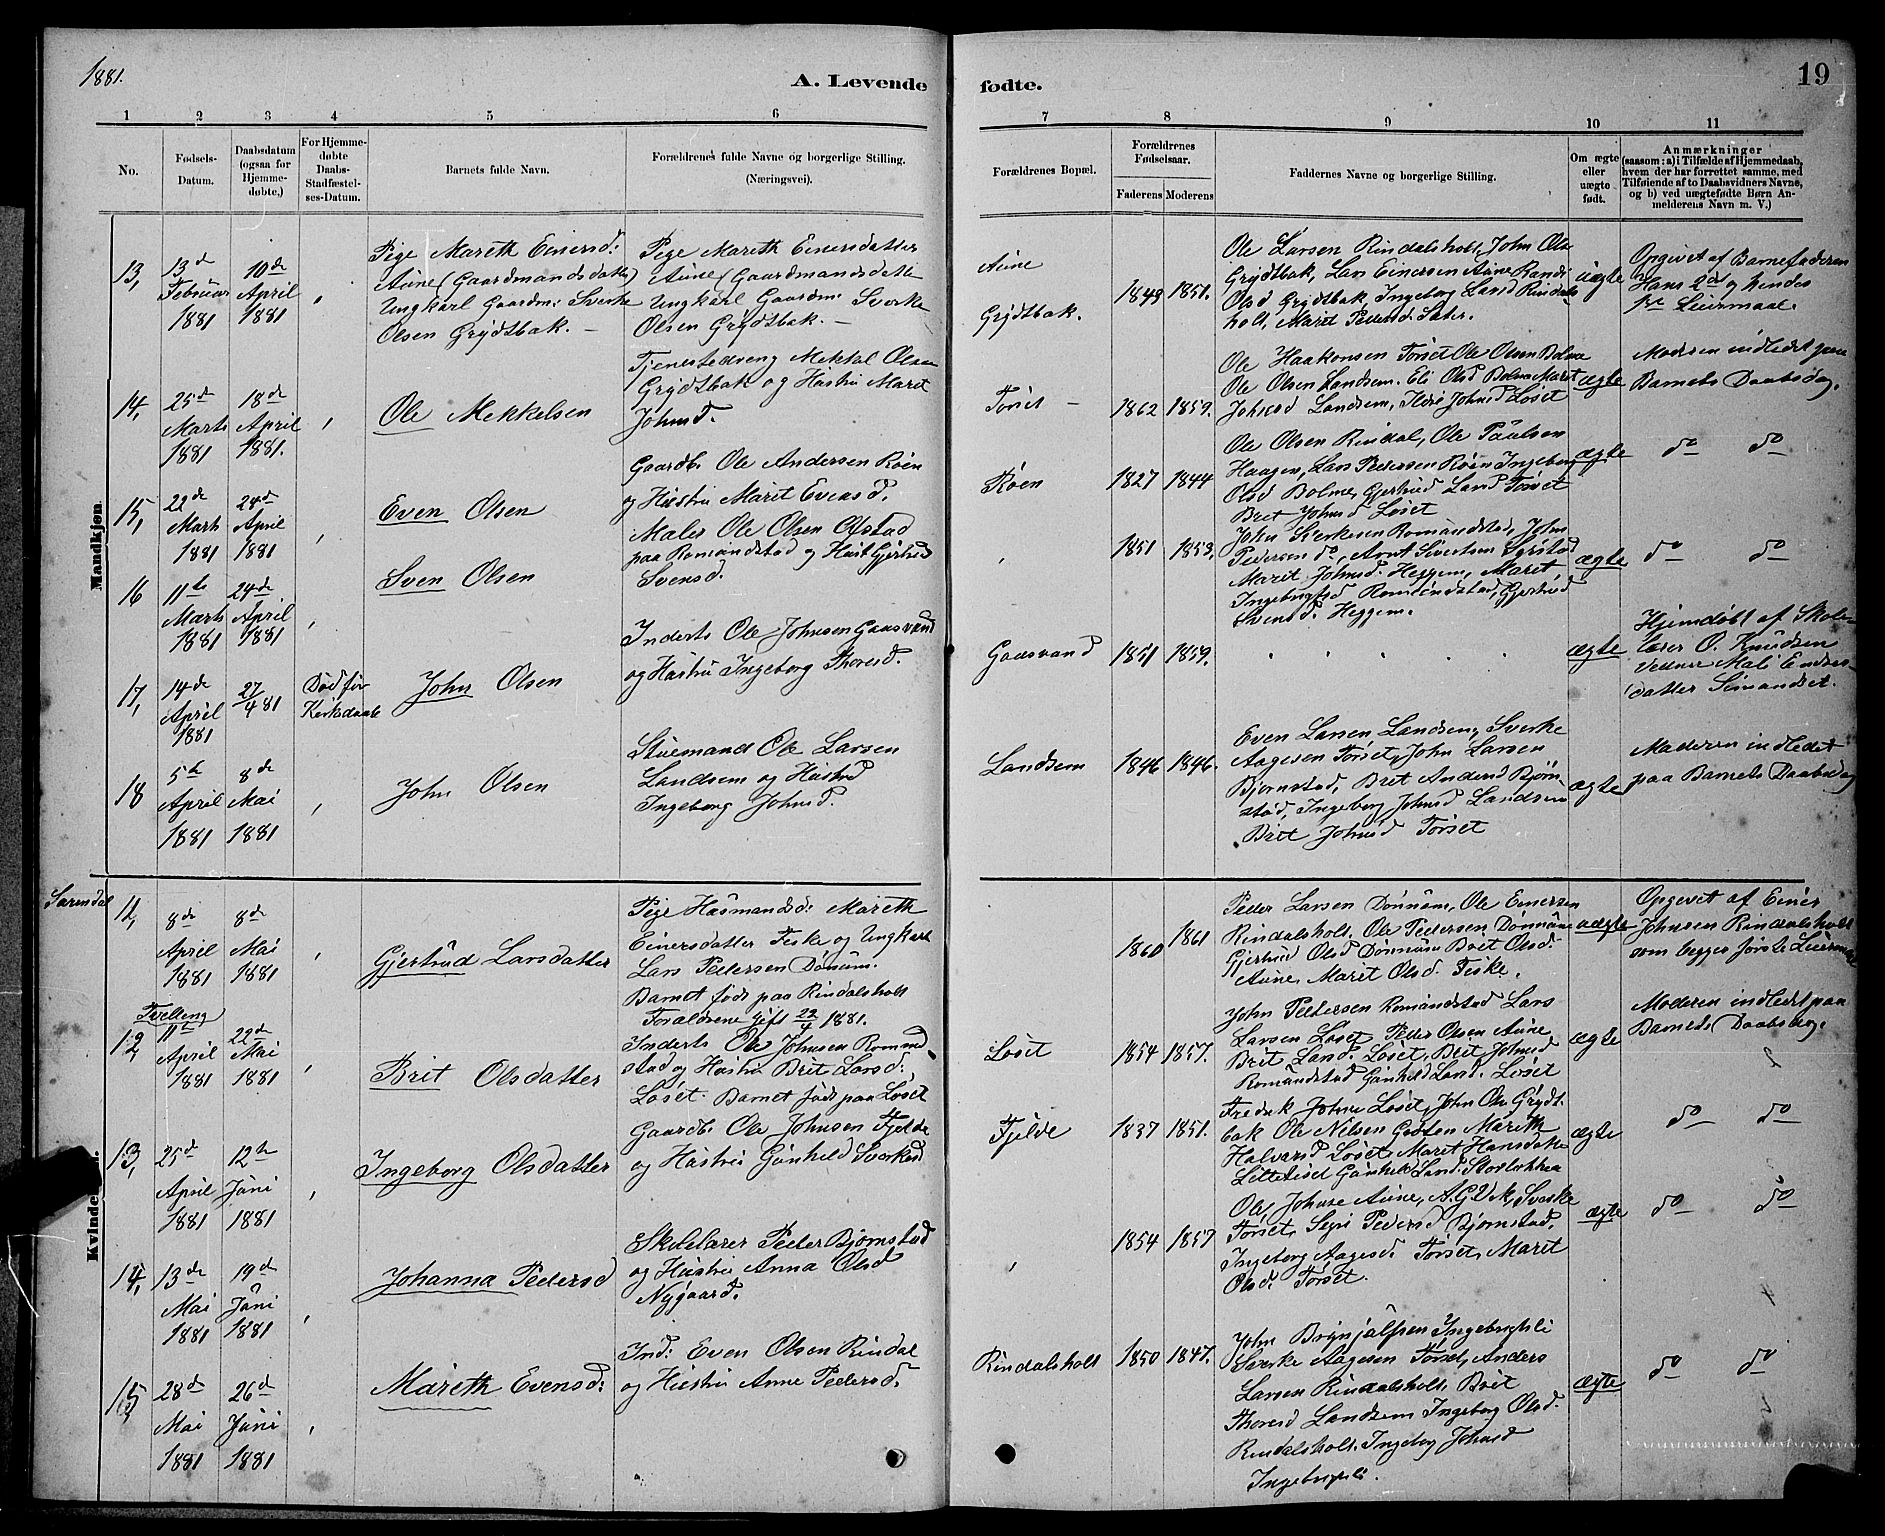 1881.
A. Levende
fødte.
19
1 2 3 4 5 6 7 8 9 10 11
No.
Fødsels-Datum.
Daabsdatum (ogsaa for Hjemmedøbte.)
For Hjemmedøbte Daabs-Stadfæstelses-Datum.
Barnets fulde Navn.
Forældrenes fulde Navne og borgerlige Stilling. (Næringsvei).
Forældrenes Bopæl.
Forældrenes Fødselsaar.
Faderens Moderens
Faddernes Navne og borgerlige Stilling.
Om ægte eller uægte født.
Anmærkninger (saasom: a) i Tilfælde af Hjemmedaab, hvem der har forrettet samme, med Tilføiende af to Daabsvidners Navne, og b) ved uægtefødte Børn Anmelderens Navn m. V.)
Mandkjøn
13, 13de Februar 1881
10de April 1881
Pige Mareth Einersd:
Aune (Gaardmandsdatter)
Ungkarl Gaardm: Sverke
Olsen Grydtbak. –
Pige Mareth Einersdatter
Aune (Gaardmandsdatter
Ungkarl Gaardm Sverke
Olsen Grydtbak. –
Aune
Grydtbak.
1849 1851.
Ole Larsen Rindalsholt, John Ols
Grydtbak, Lars Einersen Aune Randi
Olsd Grydtbak, Ingeborg Larsd Rindals
holt, Marit Pedersd. Sæter.
uægte
Opgivet af Barnefaderen
Hans 2det og hendes
1ste Leiermaal.
14, 25de Marts 1881
18de April 1881.
Ole Mekkelsen
Tjenestedreng Mekkal Olsen
Grydtbak og Hustru Marit
Johnsd.
Torset –
1862 1859.
Ole Haakonsen Torset Ole Olsen Bolme
Ole Olsen Landsem. Eli Olsd Bolme Marit
Johnsd Landsem, Johnsd Løset
ægte
Moderen indledet paa
Barnets Daabsdag.
15, 22de Marts 1881
24de April 1881
Even Olsen
Gaardbr Ole Andersen Røen
og Hustru Marit Evensd.
Røen
1827 1844
Ole Olsen Rindal, Ole Paulsen
Haagen, Lars Pedersen Røen Ingeborg
Olsd Bolme, Gjertrud Larsd Torset
Bret Johnsd Løset
ægte
do do
16 11te Marts 1881
24de April 1881
Sven Olsen
Maler Ole Olsen Ofstad
paa Romundstad og Hust Gjertrud
Svensd.
1851 1853.
John Sverkesen Romundstad, John
Pedersen do, Arnt Sivertsen
Marit Johnsd. Heggem, Marit
Ingebrigtsd Romundstad, Gjertrud
Svensd. Heggem.
ægte
do do
17, 14de April 1881
27/4 81
Død før
Kirkedaab
John Olsen
Inderst Ole Johnsen Gaasvand
og Hustru Ingeborg Thoresd.
Gaasvand
1851 1859.
ægte
Hjemdøbt af Skole
lærer O. Knudsen
Mali
datter Simandset.
18 5te April 1881
8de Mai 1881
John Olsen
Stuemand Ole Larsen
Landsem og Hustru
Ingeborg Johnsd.
Landsem
1846 1846.
Even Larsen Landsem, Sverke
Aagesen Torset, John Larsen
Bjørnstad, Bret Andersd Bjørn
stad, Ingeborg Johnsd Landsem
Brit Johnsd Torset
ægte
Moderen indledet
paa Barnets Daabsdag
Kvinde
Surendal
11, 8de April 1881
8de Mai 1881
Gjertrud Larsdatter
Pige Husmandsd: Mareth
Einersdatter Fiske og Ungkarl
Lars Pedersen Dønum.
Barnet født paa Rindalsholt
Foraldrene gift 22/4 1881.
1860 1861
Peder Larsen Dønnum, Ole Einersen
Rindalsholt, Ole Pedersen Dønnum
Gjertrud Olsd Dønnum Bret Olsd.
Aune, Marit Olsd. Fiske.
uægte
Opgevet af Einer
Johnsen Rindalsholt
som begges første Leierm
Tvelling
12, 11te April 1881
22de Mai 1881
Brit Olsdatter
Inderst Ole Johnsen Romund
stad og Hustru Brit Larsd:
Løset. Barnet født paa Løset
Løset
1854 1857.
John Pedersen Romundstad Lars
Larsen Løset, Peder Olsen Aune
Brit Larsd. Løset, Brit Johnsd
Romundstad Gunhild Larsd. Løset
ægte
Moderen indledet paa
Barnets Daabsdag.
13, 25de April 1881
12te Juni 1881
Ingeborg Olsdatter
Gaardbr Ole Johnsen Fjelde
og Hustru Gunhild Sverkesd
Fjelde
1837 1851.
Fredrik Johns Løset, John Ols Grydt
bak Ole Nilsen Marith
Halvarsd Løset, Marit Hansdatter
Lillebiset Gunhild Larsd. Storløkken
ægte
do do
14, 13de Mai 1881
19de Juni 1881
Johanna Pedersd
Skolelærer Peder Bjørnstad
og Hustru Anna Olsd
Nygaard.
1854 1857
Ole Johnse Aune, Sverke
Torset, Segri Pedersd Bjørnstad,
Ingeborg Aagesd. Torset, Marit
Olsd. Torset.
ægte
do do
15 28de Mai 1881
26de Juni 1881
Mareth Evensd:
Ind: Even Olsen Rindal
og Hustru Anne Pedersd.
Rindalsholt
1850 1847.
John Brynjulfsen Ingebrigtsli
Sverke Aagesen Torset, Anders
Larsen Rindalsholt Brit
Thoresd Landsem Ingeborg Olsd.
Rindalsholt. Ingeborg Johnsd
Ingebrigtsli.
ægte
do do